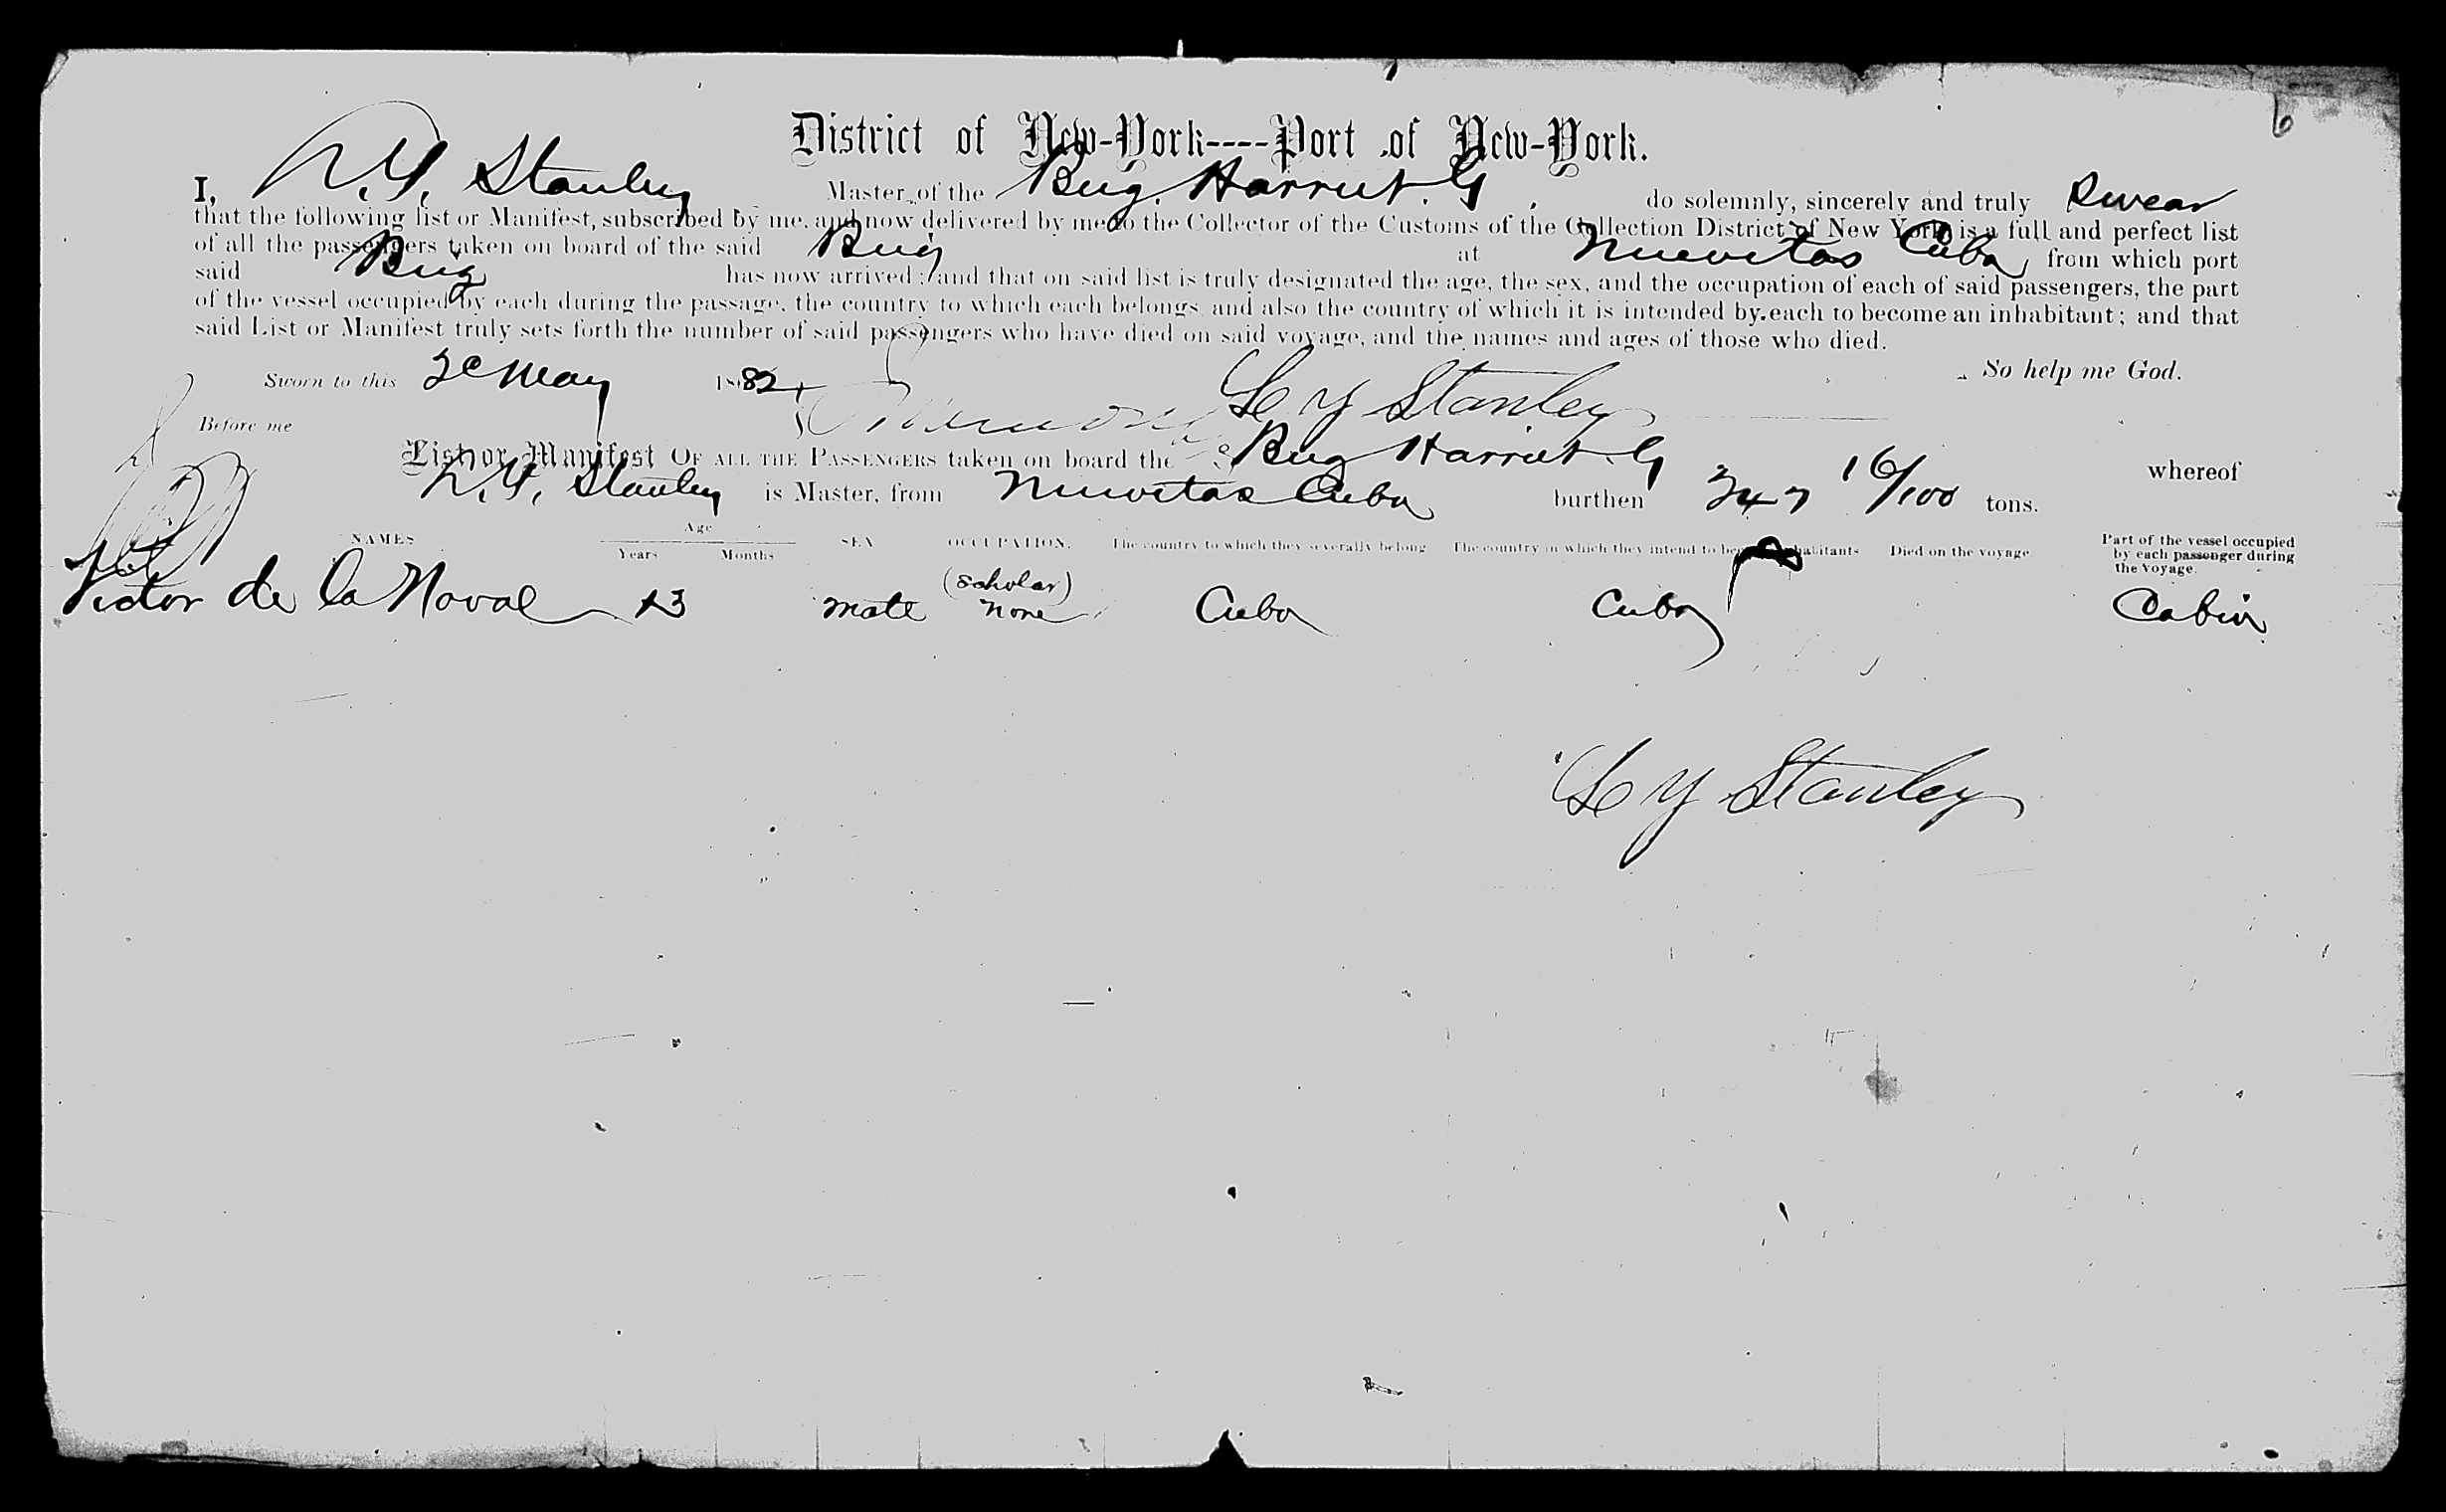 6
District of New-York----Port of New-York.
I, L.Y. Stanley Master of the Brig. Harriet. G do solemnly, sincerely and truly Swear
that the following list or Manifest, subscribed by me, and now delivered by me to the Collector of the Customs of the Collection District of New York, is a full and perfect list
of all the passengers taken on board of the said Brig at Nuevitas Cuba, from which port
said Brig has now arrived; and that on said list is truly designated the age, the sex, and the occupation of each of said passengers, the part
of the vessel occupied by each during the passage, the country to which each belongs and also the country of which it is intended by each to become an inhabitant; and that
said List or Manifest truly sets forth the number of said passengers who have died on said voyage, and the names and ages of those who died.
So help me God.
Sworn to this 2d May 1882
L Y Stanley
Before me
List or Manifest OF ALL THE PASSENGERS taken on board the Brig Harriet. G whereof
L.Y. Stanley is Master, from Nuevitas Cuba burthen 247 16/100 tons.
NAMES Age Years Months SEX OCCUPATION. The country to which they severally belong The country in which they intend to become inhabitants Died on the voyage Part of the vessel occupied by each passenger during the voyage.
(Scholar)
Victor de la Noval 13 male none Cuba Cuba Cabin
L Y Stanley